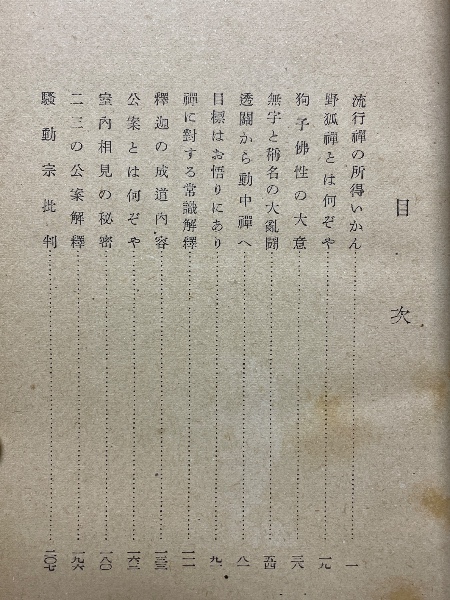 目次
流行禪の所得いかん……一
野狐禪とは何ぞや……一九
狗子佛性の大意……三八
無字と稱名の大亂鬪……五四
透關から動中禪へ……八一
目標はお悟りにあり……九一
禪に對する常識解釋……一一一
釋迦の成道內容……一三三
公案とは何ぞや……一六三
室內相見の秘密……一八〇
二三の公案解釋……一九六
騷動宗批判……二〇七